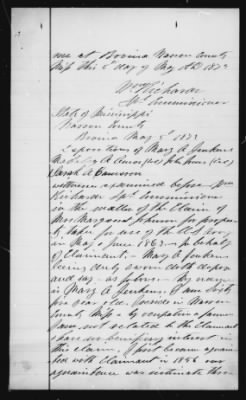 me at Bovina Warren County
Miss this 5" day of May A.D. 1873
Wm Richards
Spl Commissioner
State of Mississippi
Warren County
Bovina May 5" 1873
Depositions of Mary A Jenkins
Sarah A Cameron
witnesses examined before Wm
Richards Spl Commissioner
in the matter of the Claim of
Mrs Margaret Johnson for proper
ty taken for use of the U.S. Army
in May & June 1863. In behalf
of Claimant. Mary A Jenkins
being duly sworn doth depose
and say as follows. My name
is Mary A Jenkins. I am sixty
six years old. I reside in Warren
County Miss & by occupation a farmer
I am not related to the Claimant
& have no beneficiary interest in
this claim. I first became acquain
ted with Claimant in 1856 our
acquaintance was intimate there